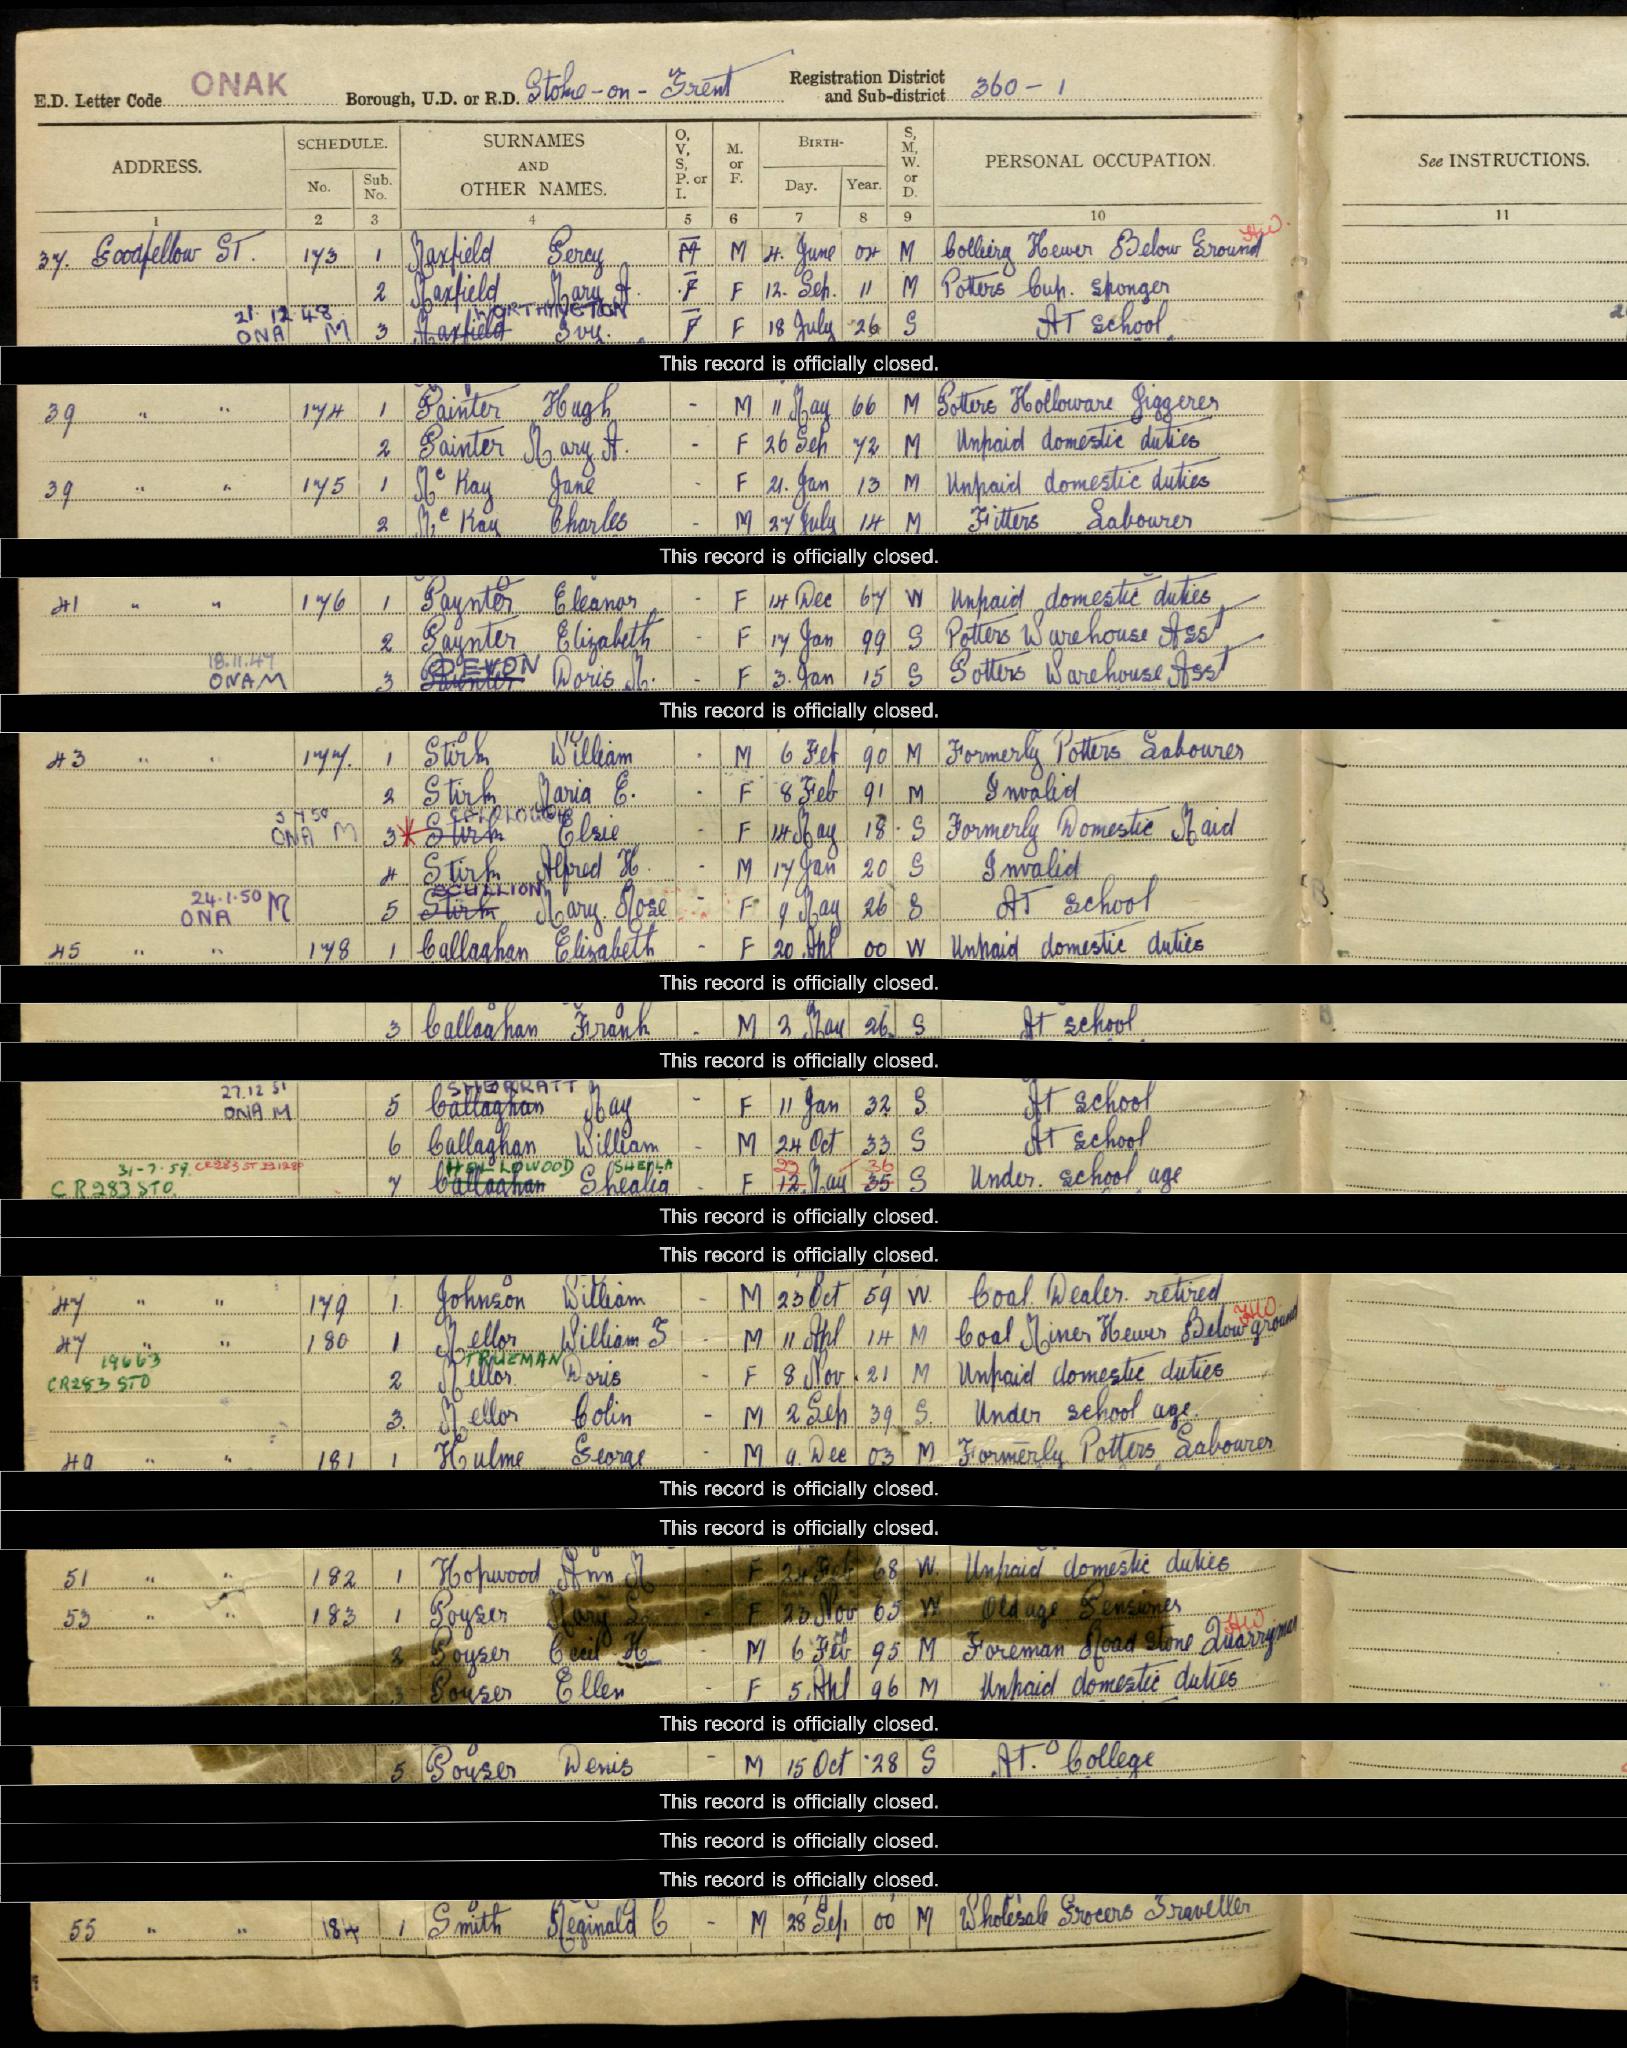 ONAK
E.D. Letter Code Borough, U.D. or R.D. Stoke-on-Trent Registration District and Sub-district 360-1
ADDRESS. SCHEDULE. No. Sub. No. SURNAMES AND OTHER NAMES. O, V, S, P. or I. M. or F. BIRTH- Day. Year. S, M, W. or D. PERSONAL OCCUPATION. See INSTRUCTIONS.
1 2 3 4 5 6 7 8 9 10 11
37. Goodfellow ST. 173 1 Maxfield Percy M M 4. June 04 M Colliery Hewer Below Ground HW.
2 Maxfield Mary A. F F 12. Sep. 11 M Potters Cup. Sponger
21.12.48 WORTHINGTON
ONA M 3 Maxfield Ivy. F F 18 July 26 S AT School
This record is officially closed.
39 " " 174 1 Painter Hugh - M 11 May 66 M Potters Holloware Jiggerer
2 Painter Mary A. - F 26 Sep 72 M Unpaid domestic duties
39 " " 175 1 Mc Kay Jane - F 21. Jan 13 M Unpaid domestic duties
2 Mc Kay Charles - M 27 July 14 M Fitters Labourer
This record is officially closed.
41 " " 176 1 Paynter Eleanor - F 14 Dec 67 W Unpaid domestic duties
2 Paynter Elizabeth - F 17 Jan 99 S Potters Warehouse Asst
18.11.47 DEVON
ONAM 3 Paynter Doris M. - F 3. Jan 15 S Potters Warehouse Asst
This record is officially closed.
43 " " 177. 1 Stirk William - M 6 Feb 90 M Formerly Potters Labourer
2 Stirk Maria E. - F 8 Feb 91 M Invalid
ONA M 3 Stirk Elsie - F 14 May 18 S Formerly Domestic Maid
4 Stirk Alfred H. - M 17 Jan 20 S Invalid
24.1.50 SCULLION
ONA M 5 Stirk Mary. Rose - F 9 May 26 S AT School
45 " " 178 1 Callaghan Elizabeth - F 20 Apl 00 W Unpaid domestic duties
This record is officially closed.
3 Callaghan Frank - M 2 May 26 S At School
This record is officially closed.
27.12 51 SHERRATT
ONA M 5 Callaghan May - F 11 Jan 32 S At School
6 Callaghan William - M 24 Oct 33 S At School
31-7-59. HOLLOWOOD SHEILA 22 36
CR283 STO 7 Callaghan Shealia - F 12 May 35 S Under. School age
This record is officially closed.
This record is officially closed.
47 " " 179 1. Johnson William - M 23 Oct 59 W. Coal Dealer. retired
47 " " 180 1 Mellor William T - M 11 Apl 14 M Coal Miner Hewer Below ground HW
19663 TRUEMAN
CR283 STO 2 Mellor. Doris - F 8 Nov. 21 M Unpaid domestic duties
3. Mellor Colin - M 2 Sep 39 S. Under School age.
49 " " 181 1 Hulme George - M 9. Dec 03 M Formerly Potters Labourer
This record is officially closed.
This record is officially closed.
51 " " 182 1 Hopwood Ann M - F 24 Feb 68 W. Unpaid domestic duties
53 " " 183 1 Poyser Mary - F 23 Nov 65 W Old age Pensioner
2 Poyser Cecil H - M 6 Feb 95 M Foreman Road Stone Quarryman HW
3 Poyser Ellen - F 5 Apl 96 M Unpaid domestic duties
This record is officially closed.
5 Poyser Denis - M 15 Oct 28 S AT. College
This record is officially closed.
This record is officially closed.
This record is officially closed.
55 " " 184 1 Smith Reginald C - M 28 Sep. 00 M Wholesale Grocers Traveller